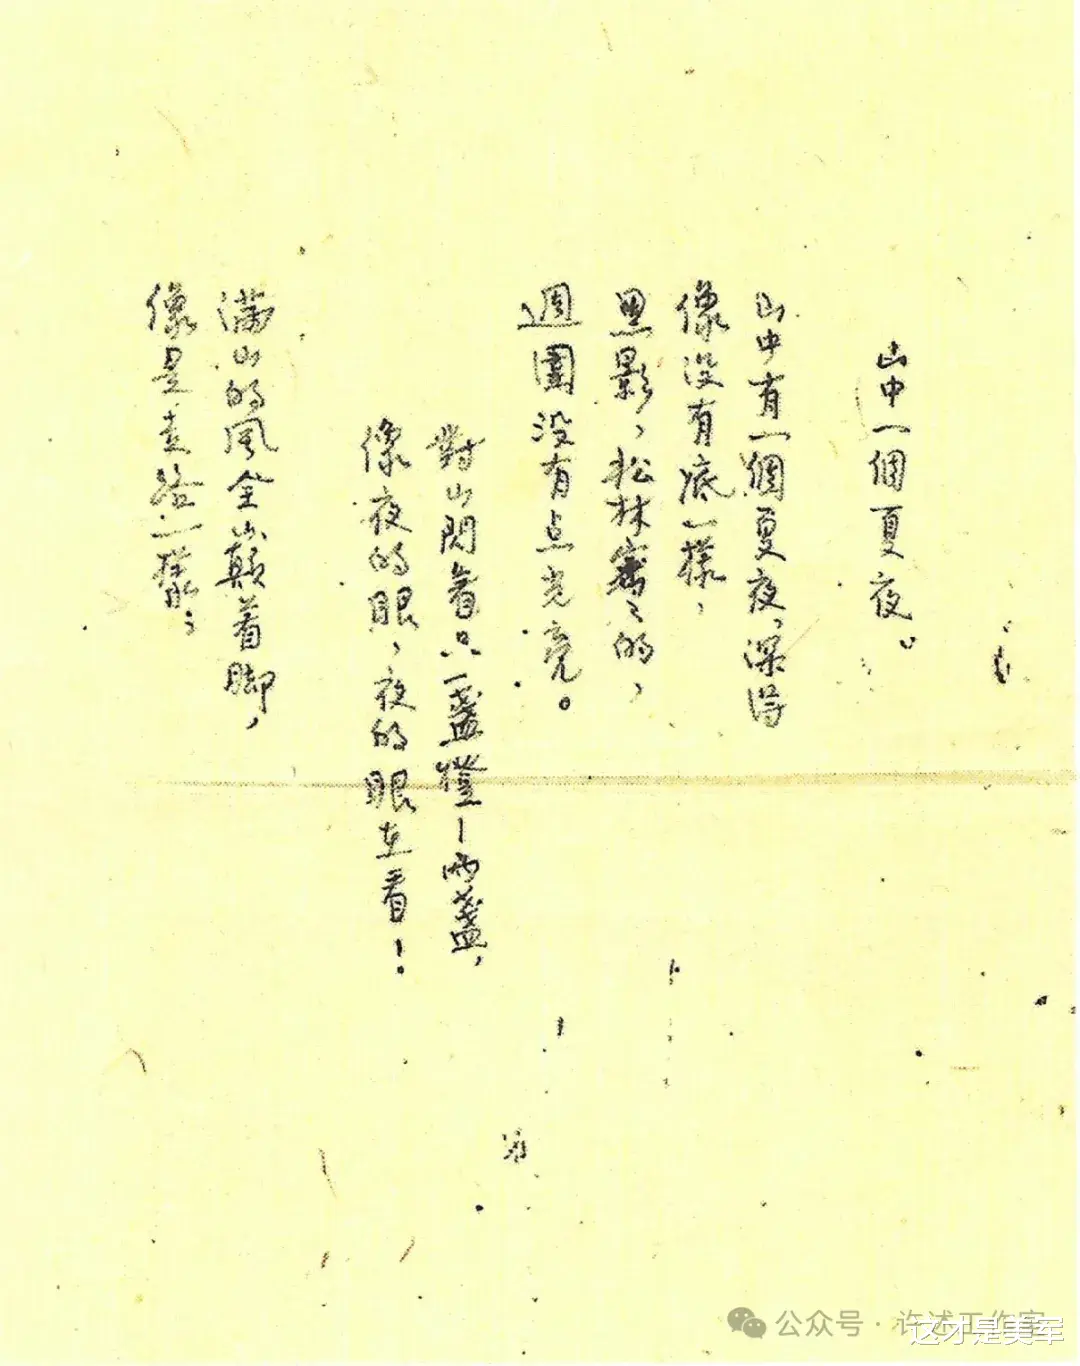 山中一個夏夜。
山中有一個夏夜，深得
像没有底一樣，
黑影，松林密々的，
週圍没有点光亮。
對山閃着只一盞燈—兩盞，
像夜的眼，夜的眼在看！
满山的風全山顛着脚，
像是走路一樣；
公众号·许述工作室
这才是美军